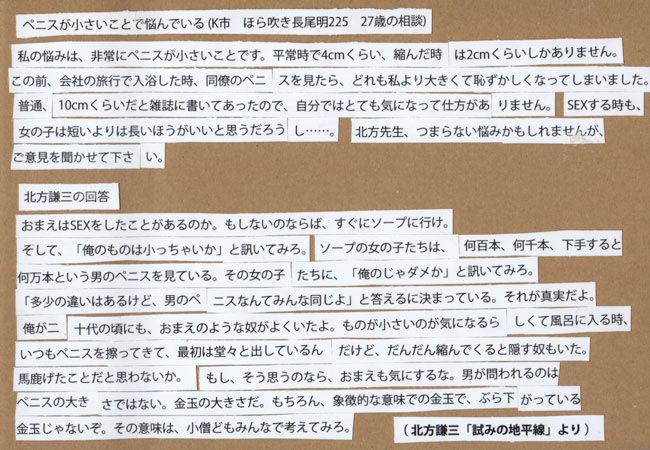 ペニスが小さいことで悩んでいる(K市　ほら吹き長尾明225　27歳の相談)
私の悩みは、非常にペニスが小さいことです。平常時で4cmくらい、縮んだ時は2cmくらいしかありません。
この前、会社の旅行で入浴した時、同僚のペニスを見たら、どれも私より大きくて恥ずかしくなってしまいました。
普通、10cmくらいだと雑誌に書いてあったので、自分ではとても気になって仕方がありません。SEXする時も、
女の子は短いよりは長いほうがいいと思うだろうし……。北方先生、つまらない悩みかもしれませんが、
ご意見を聞かせて下さい。
北方謙三の回答
おまえはSEXをしたことがあるのか。もしないのならば、すぐにソープに行け。
そして、「俺のものは小っちゃいか」と訊いてみろ。ソープの女の子たちは、何百本、何千本、下手すると
何万本という男のペニスを見ている。その女の子たちに、「俺のじゃダメか」と訊いてみろ。
「多少の違いはあるけど、男のペニスなんてみんな同じよ」と答えるに決まっている。それが真実だよ。
俺が二十代の頃にも、おまえのような奴がよくいたよ。ものが小さいのが気になるらしくて風呂に入る時、
いつもペニスを擦ってきて、最初は堂々と出しているんだけど、だんだん縮んでくると隠す奴もいた。
馬鹿げたことだと思わないか。もし、そう思うのなら、おまえも気にするな。男が問われるのは
ペニスの大きさではない。金玉の大きさだ。もちろん、象徴的な意味での金玉で、ぶら下がっている
金玉じゃないぞ。その意味は、小僧どもみんなで考えてみろ。
(北方謙三「試みの地平線」より)